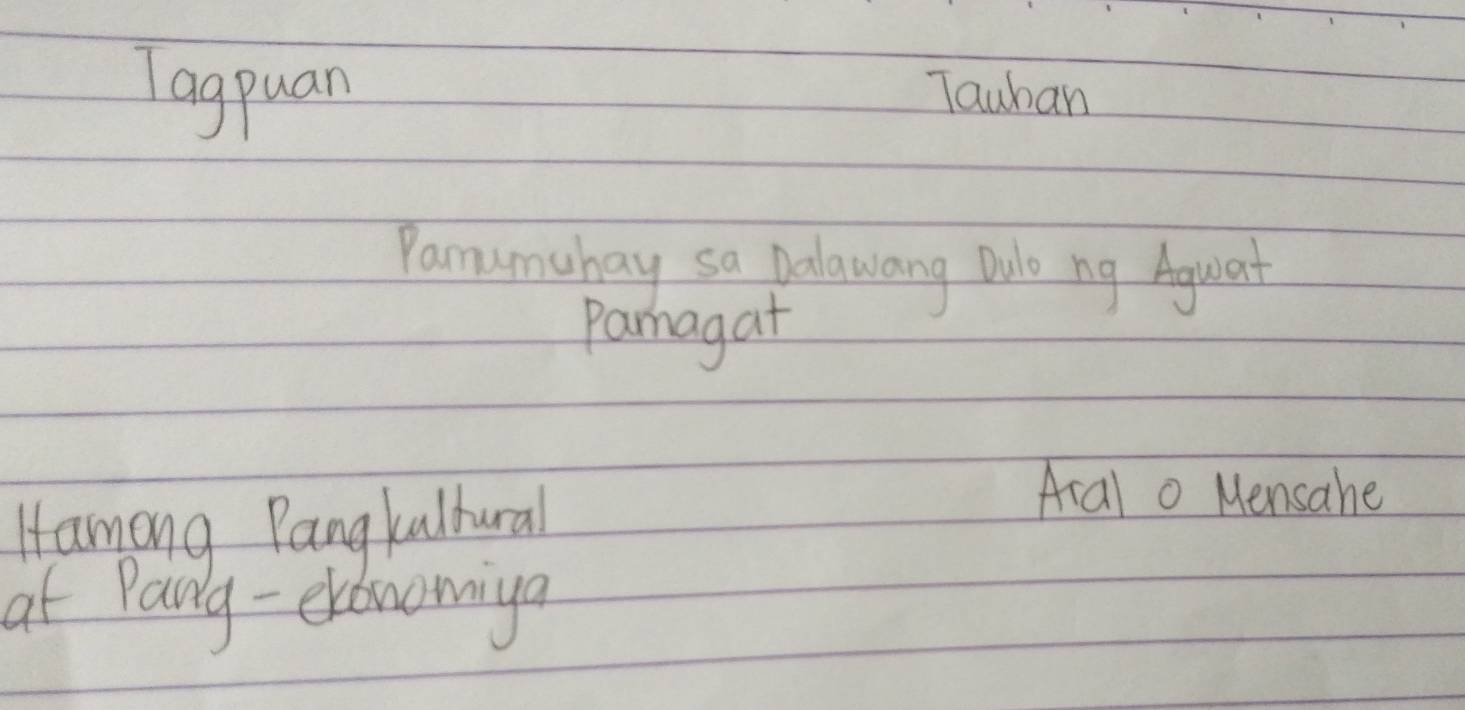 Tagpuan
Tauhan
Pamumuhay sa Dalawang Dulo ng Agwat
Pamagat
Hamong Pangkultural
at Pang-ekonomiya
Aral o Mensahe